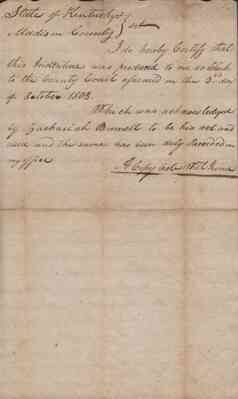 State of Kentucky
Madison County } sct
I do hereby Certify that
this Indenture was produced to me as Clerk
to the County Court aforesaid on the 3rd day
of October 1803.
Which was acknowledged
by Zachariah Burnett to be his act and
deed and the same has been duly Recorded in
my office
A Copy Teste Will Irvine